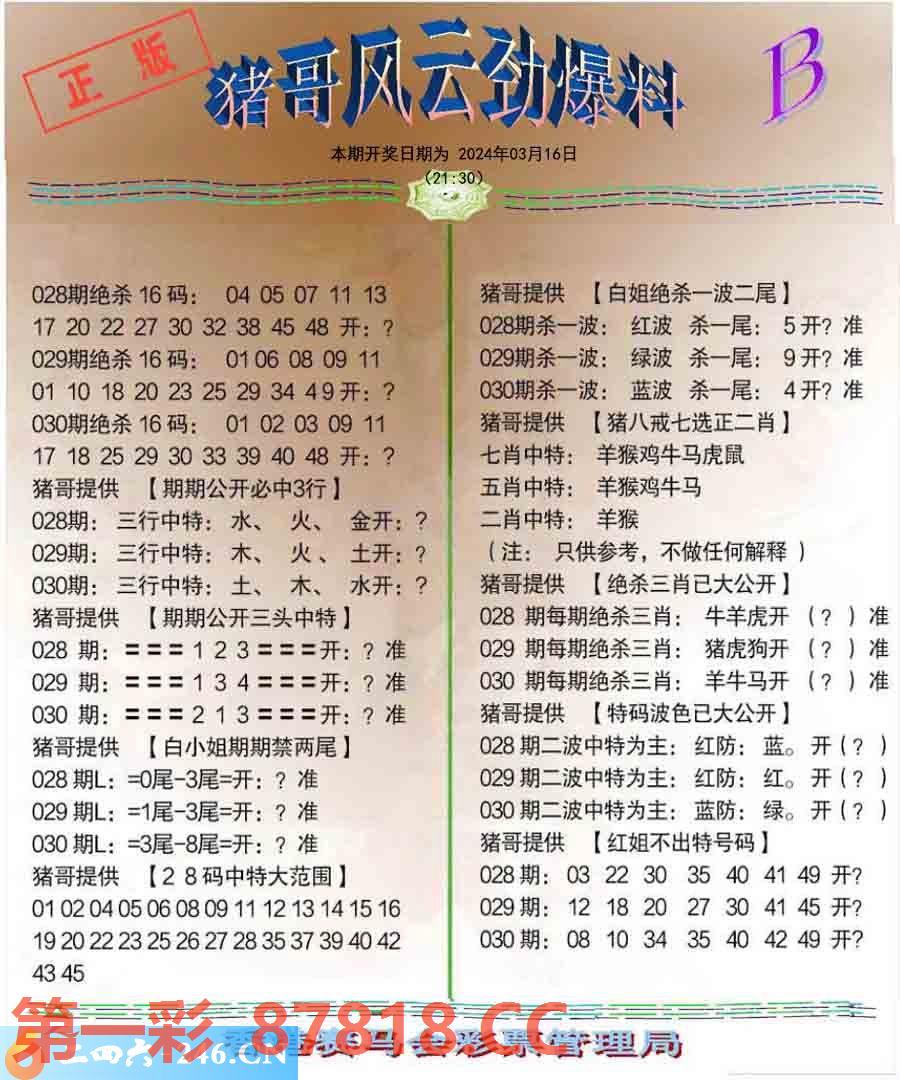 正版
猪哥风云劲爆料
B
本期开奖日期为 2024年03月16日
(21:30)
028期绝杀 16 码： 04 05 07 11 13
17 20 22 27 30 32 38 45 48 开：?
029期绝杀 16 码： 01 06 08 09 11
01 10 18 20 23 25 29 34 49 开：?
030期绝杀 16 码： 01 02 03 09 11
17 18 25 29 30 33 39 40 48 开：?
猪哥提供 【期期公开必中3行】
028期： 三行中特： 水、 火、 金开：?
029期： 三行中特： 木、 火、 土开：?
030期： 三行中特： 土、 木、 水开：?
猪哥提供 【期期公开三头中特】
028 期：＝＝＝1 2 3＝＝＝开：? 准
029 期：＝＝＝1 3 4＝＝＝开：? 准
030 期：＝＝＝2 1 3＝＝＝开：? 准
猪哥提供 【白小姐期期禁两尾】
028 期L：=0尾-3尾=开：? 准
029 期L：=1尾-3尾=开：? 准
030 期L：=3尾-8尾=开：? 准
猪哥提供 【2 8 码中特大范围】
01 02 04 05 06 08 09 11 12 13 14 15 16
19 20 22 23 25 26 27 28 35 37 39 40 42
43 45
猪哥提供 【白姐绝杀一波二尾】
028期杀一波： 红波 杀一尾： 5 开? 准
029期杀一波： 绿波 杀一尾： 9 开? 准
030期杀一波： 蓝波 杀一尾： 4 开? 准
猪哥提供 【猪八戒七选正二肖】
七肖中特： 羊猴鸡牛马虎鼠
五肖中特： 羊猴鸡牛马
二肖中特： 羊猴
（注： 只供参考，不做任何解释 ）
猪哥提供 【绝杀三肖已大公开】
028 期每期绝杀三肖： 牛羊虎开 （? ）准
029 期每期绝杀三肖： 猪虎狗开 （? ）准
030 期每期绝杀三肖： 羊牛马开 （? ）准
猪哥提供 【特码波色已大公开】
028 期二波中特为主： 红防： 蓝。 开（? ）
029 期二波中特为主： 红防： 红。 开（? ）
030 期二波中特为主： 蓝防： 绿。 开（? ）
猪哥提供 【红姐不出特号码】
028 期： 03 22 30 35 40 41 49 开?
029 期： 12 18 20 27 30 41 45 开?
030 期： 08 10 34 35 40 42 49 开?
第一彩 87818.CC
二四六 246.CN
香港赛马会彩票管理局